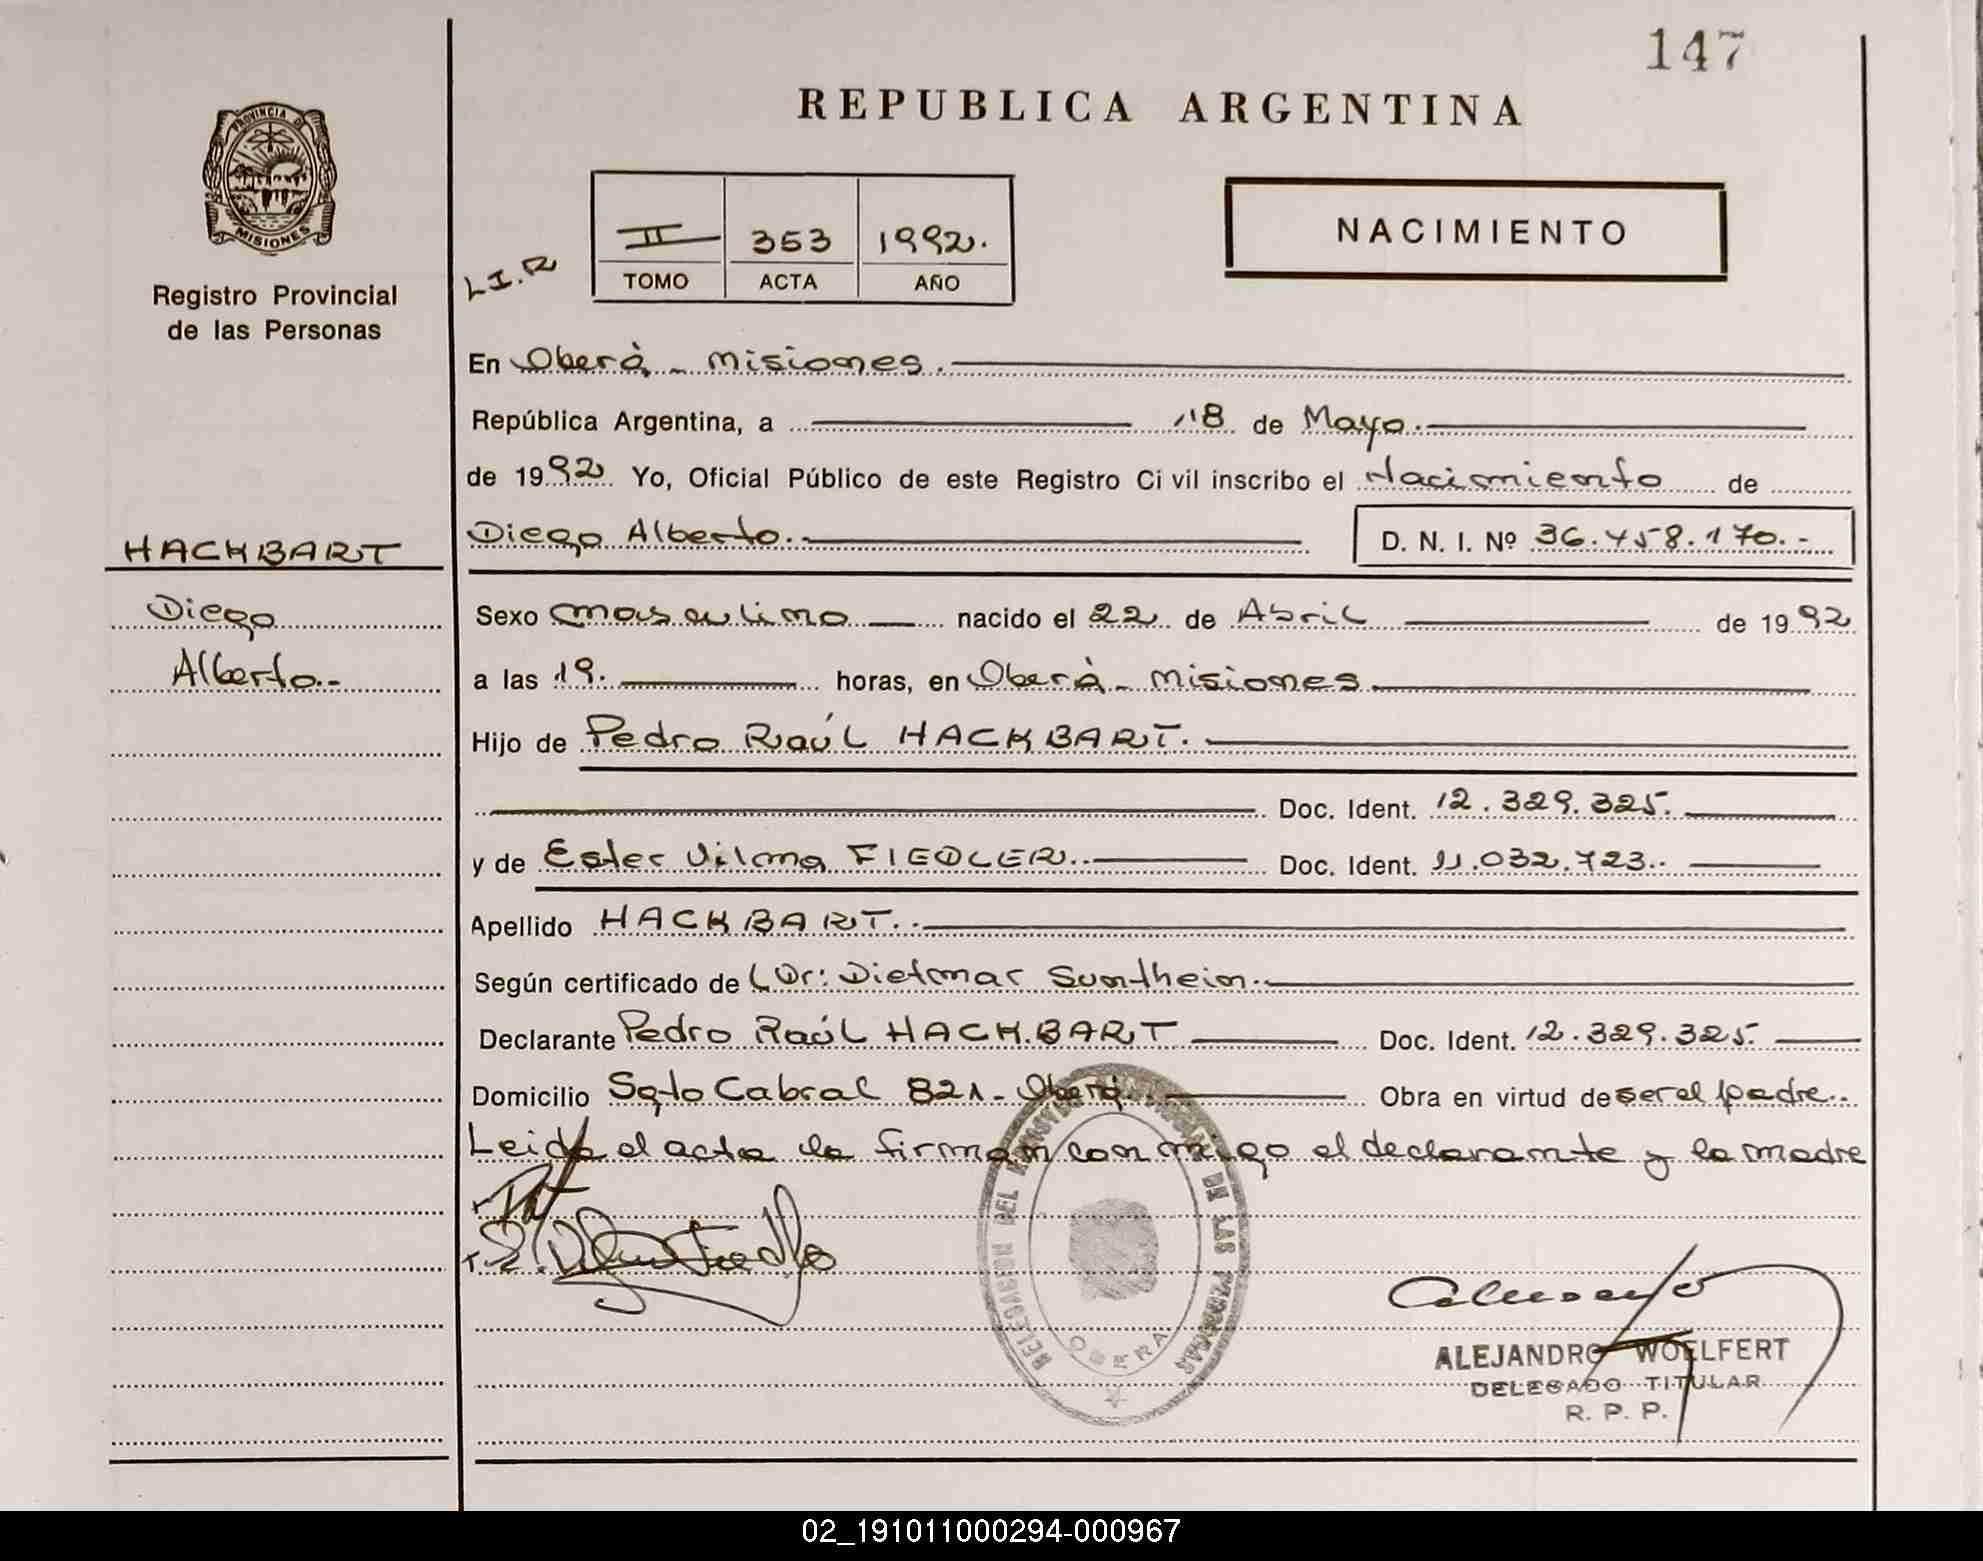 147
REPUBLICA ARGENTINA
PROVINCIA DE MISIONES
Registro Provincial
de las Personas
L.I.R
II 353 1992.
TOMO ACTA AÑO
NACIMIENTO
En Oberá - Misiones.
República Argentina, a 18 de Mayo.
de 1992 Yo, Oficial Público de este Registro Civil inscribo el Nacimiento de
HACKBART
Diego Alberto.- D. N. I. Nº 36.458.170.-
Diego
Alberto.-
Sexo masculino nacido el 22 de Abril de 1992
a las 19. horas, en Oberá - Misiones
Hijo de Pedro Raúl HACKBART.
Doc. Ident. 12.329.325.
y de Ester Vilma FIEDLER.. Doc. Ident. 11.032.723..
Apellido HACKBART..
Según certificado de Dr: Dietmar Sunthein.
Declarante Pedro Raúl HACKBART Doc. Ident. 12.329.325.
Domicilio Sgto Cabral 821 - Oberá. Obra en virtud de ser el padre..
Leida el acta la firman conmigo el declarante y la madre
DE LAS PERSONAS
OBERA
ALEJANDRO WOELFERT
DELEGADO TITULAR
R. P. P.
02_191011000294-000967